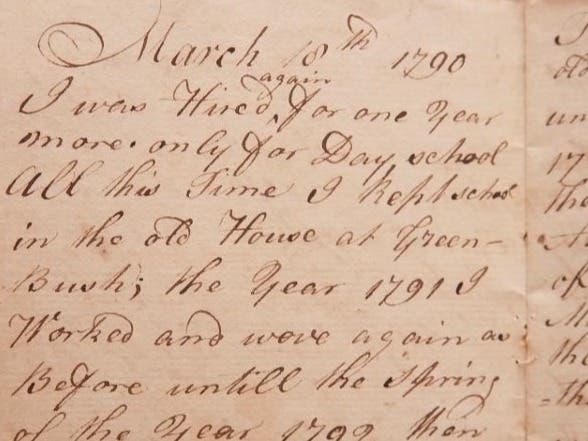 March 18th 1790
again
I was Hired, for one Year
more. only for Day school
All this Time I kept school
in the old House at Green-
Bush; the Year 1791 I
Worked and wove again as
Before untill the spring
of the Year 1792 then
old
17
of
the